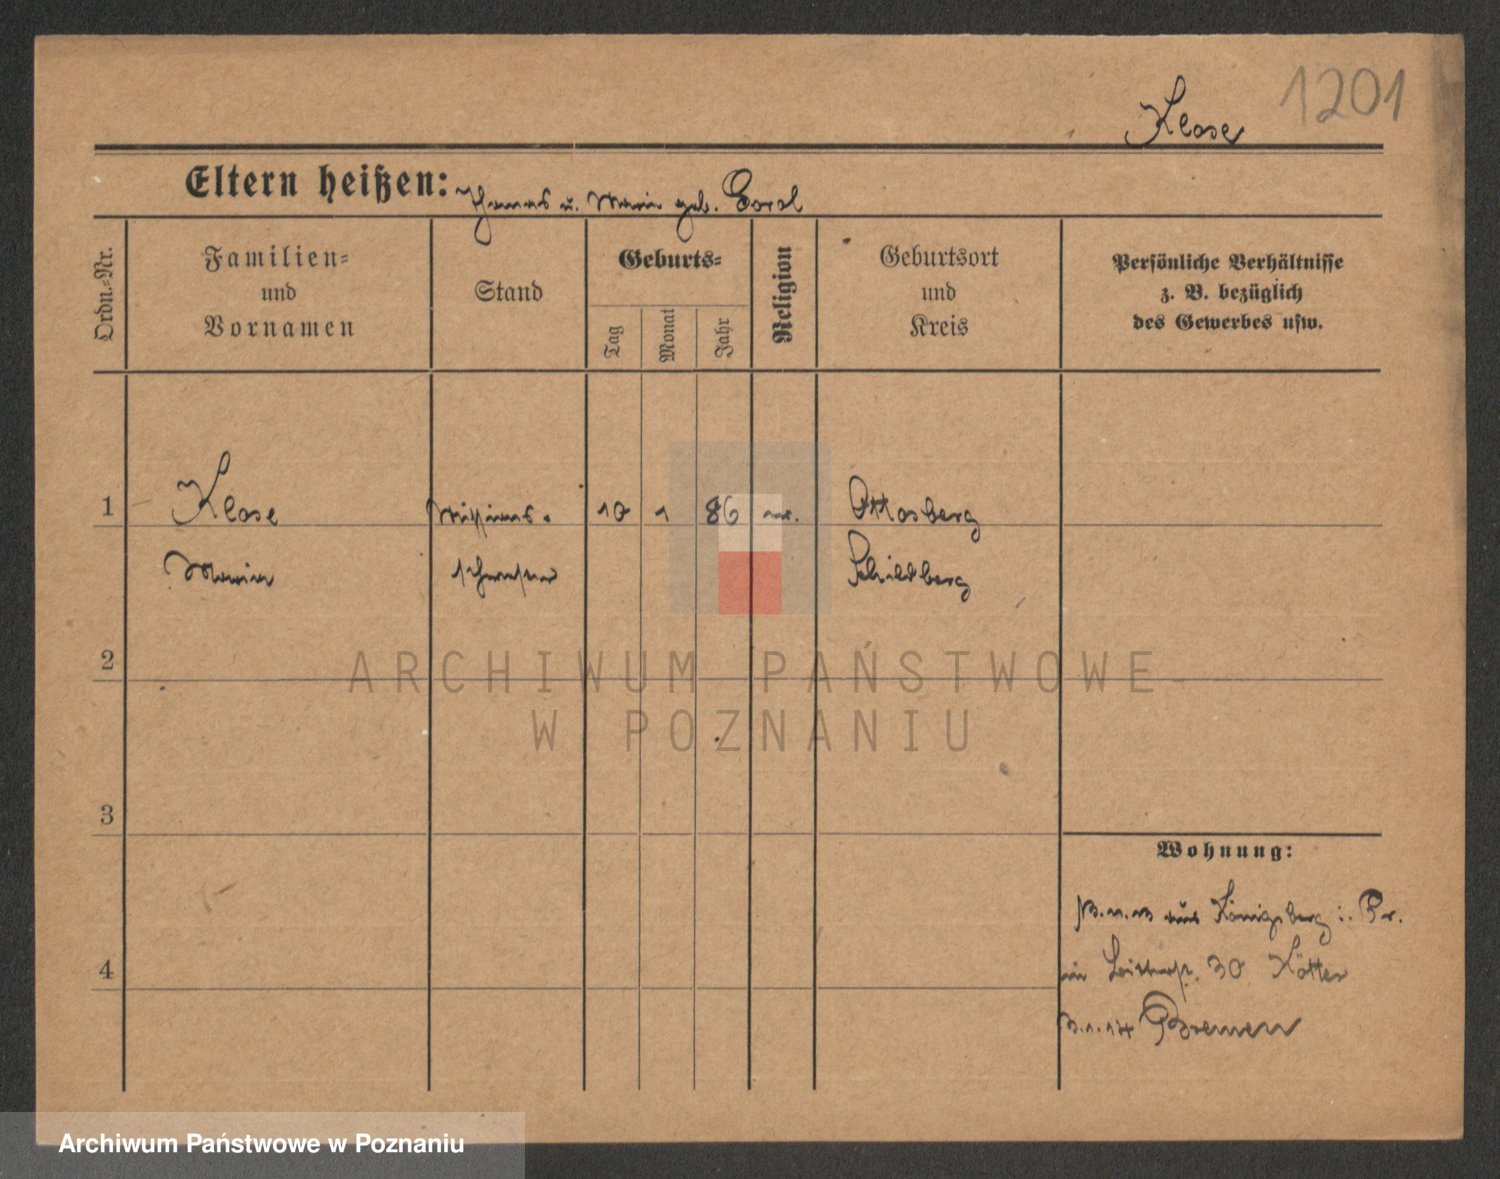 1201
Klose
Eltern heißen: Thomas u. Maria geb. Gorol
Ordn.-Nr.
Familien- und Vornamen
Stand
Geburts-
Tag
Monat
Jahr
Religion
Geburtsort und Kreis
Persönliche Verhältnisse
z. B. bezüglich
des Gewerbes usw.
1 Klose 10 1 86 Ottosberg
Maria schwester Schildberg
2
ARCHIWUM PAŃSTWOWE
W POZNANIU
3
Wohnung:
aus Königsberg i. Pr.
4
in 30 Kötter
Bremen
Archiwum Państwowe w Poznaniu